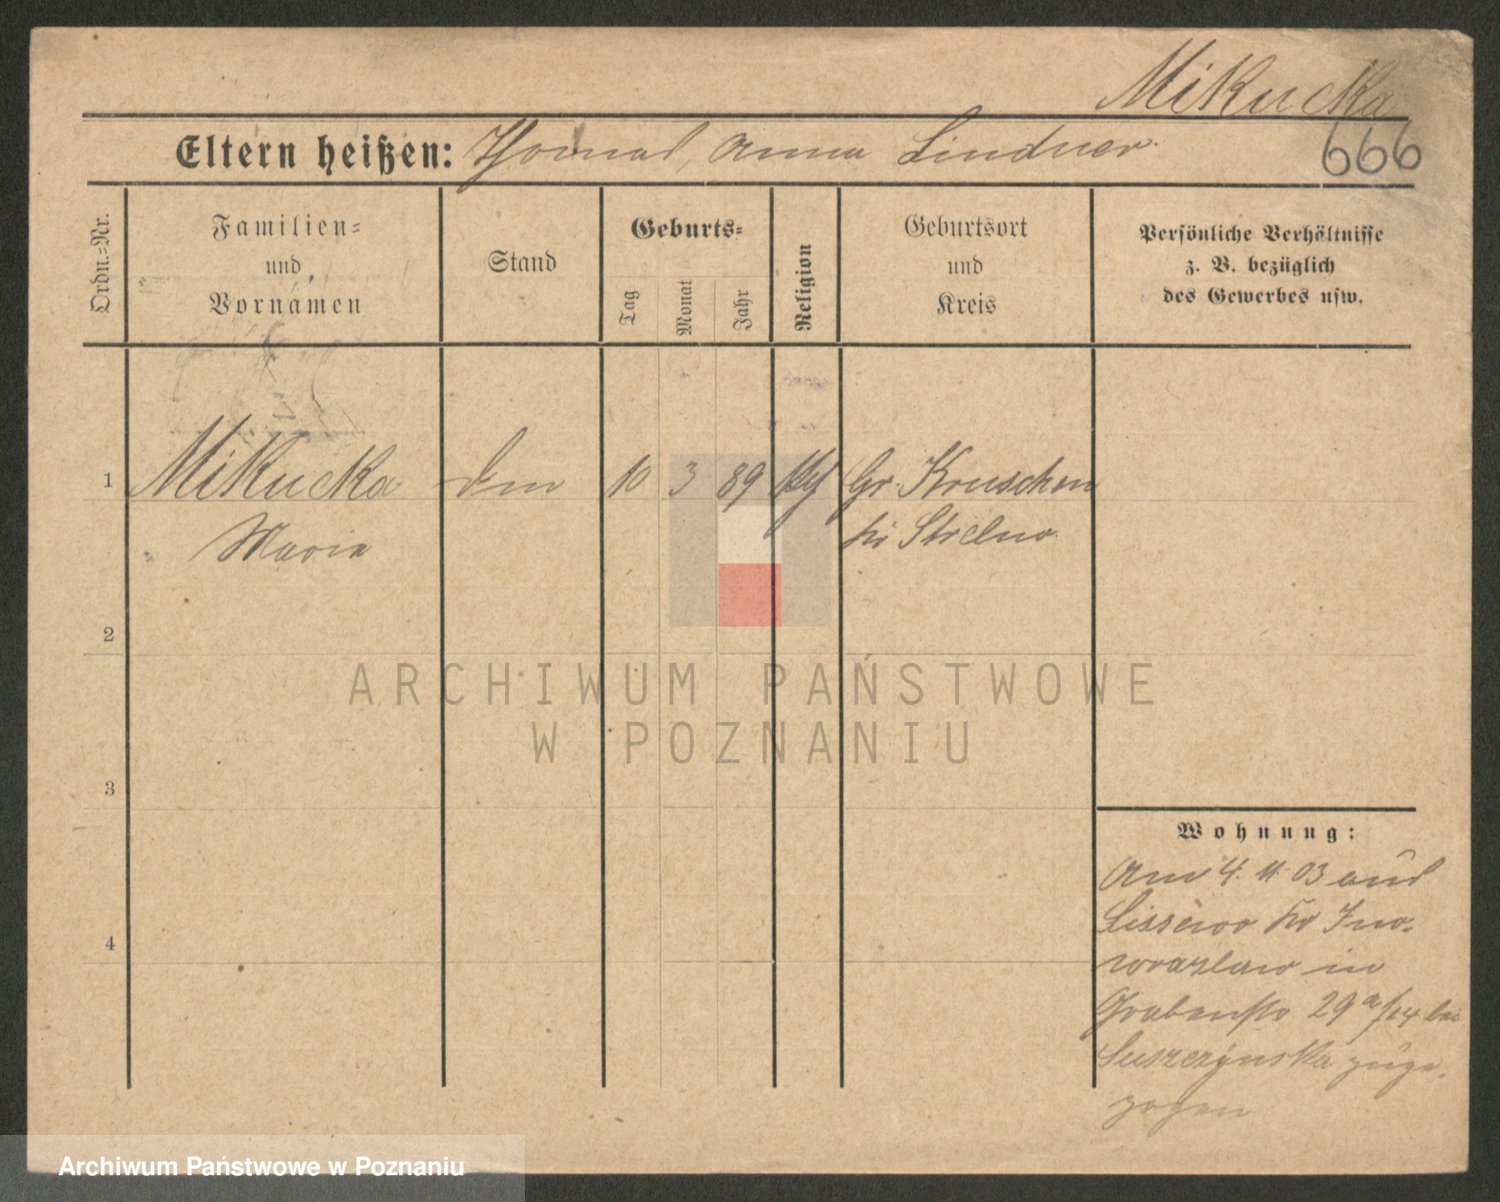 Mikucka
666
Eltern heißen: Thomas, Anna Lindner
Ordn.-Nr.
Familien-
und
Vornamen
Stand
Geburts-
Tag
Monat
Jahr
Religion
Geburtsort
und
Kreis
Persönliche Verhältnisse
z. B. bezüglich
des Gewerbes usw.
1 Mikucka 10 3 89 Gr. Kruschen
Maria Kr Strelno
2
3
4
Wohnung:
Am 4. 11. 03 aus
Lissewo Kr Ino-
wrazlaw in
Grabenstr 29a/14 bei
Suszczynska zuge-
zogen
ARCHIWUM PAŃSTWOWE
W POZNANIU
Archiwum Państwowe w Poznaniu